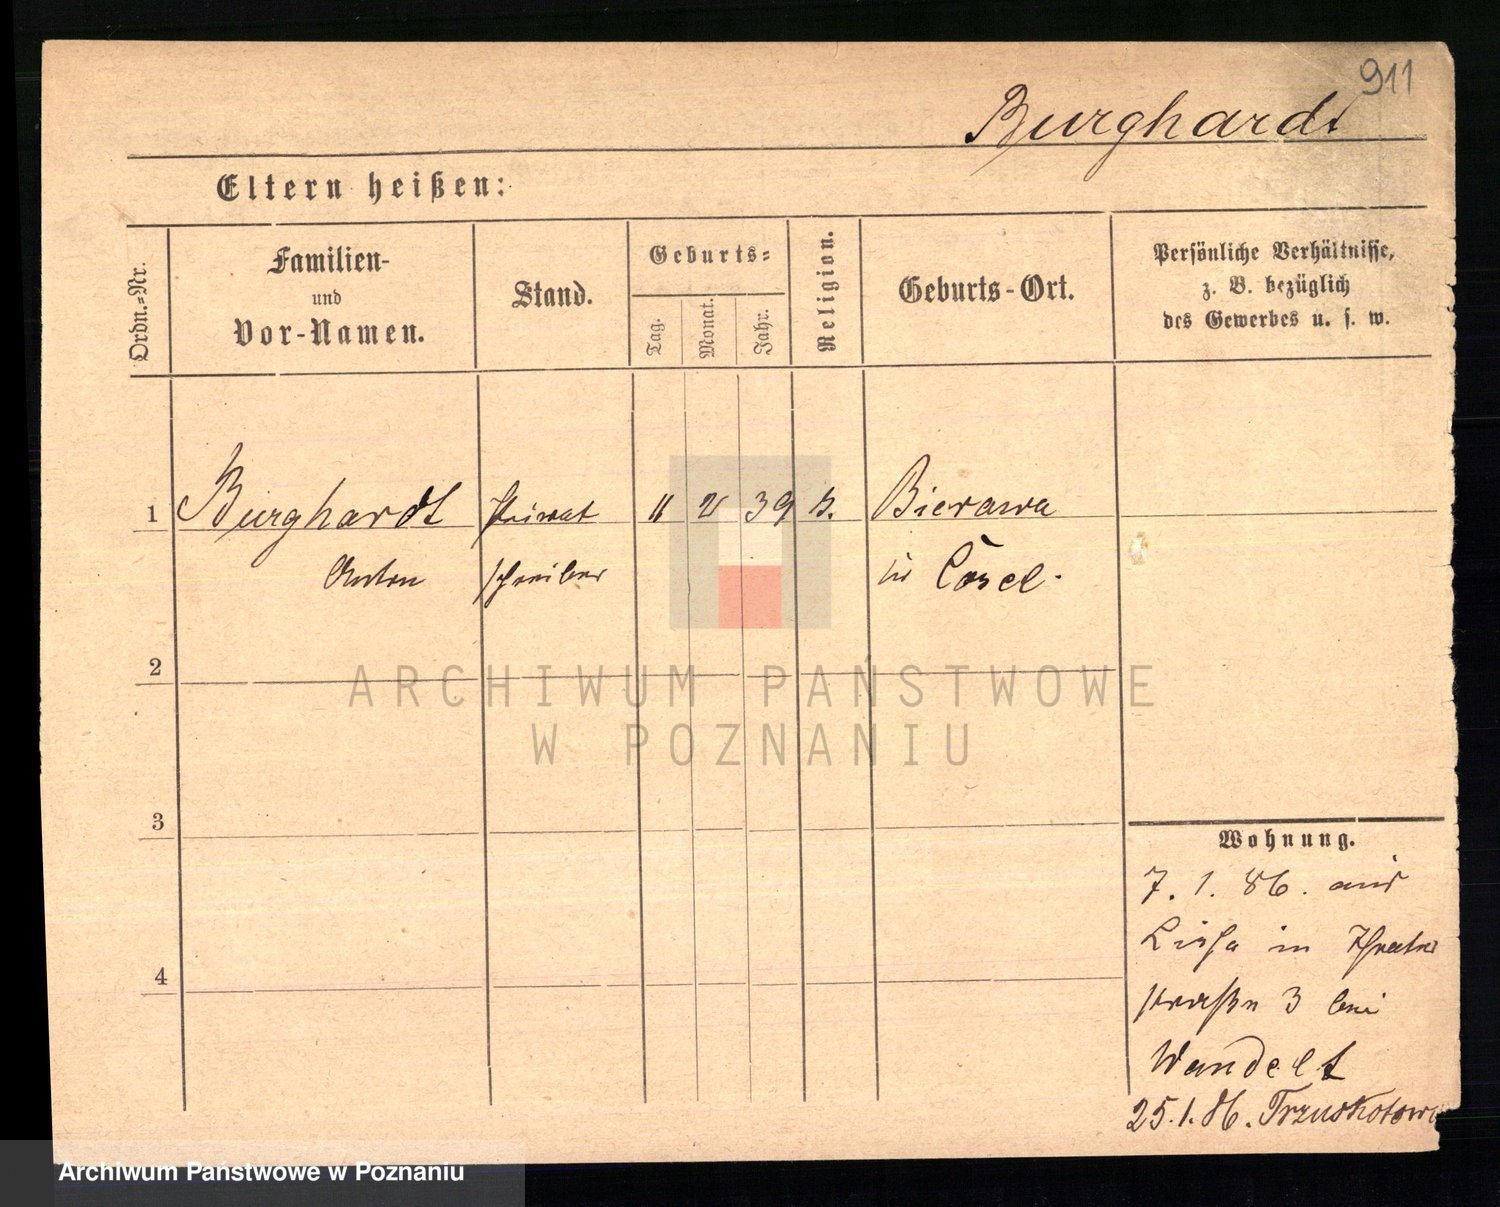 911
Burghardt
Eltern heißen:
Ordn.=Nr.
Familien-
und
Vor-Namen.
Stand.
Geburts=
Tag.
Monat.
Jahr.
Religion.
Geburts-Ort.
Persönliche Verhältnisse,
z. B. bezüglich
des Gewerbes u. s. w.
1 Burghardt Privat 11 2 39 k. Bierawa
Anton schreiber in Cosel.
2
ARCHIWUM PAŃSTWOWE
W POZNANIU
3
Wohnung.
7. 1. 86. aus
Lissa in Theater
4
straße 3 bei
Wandelt
25.1.86. Trzuskotowo
Archiwum Państwowe w Poznaniu